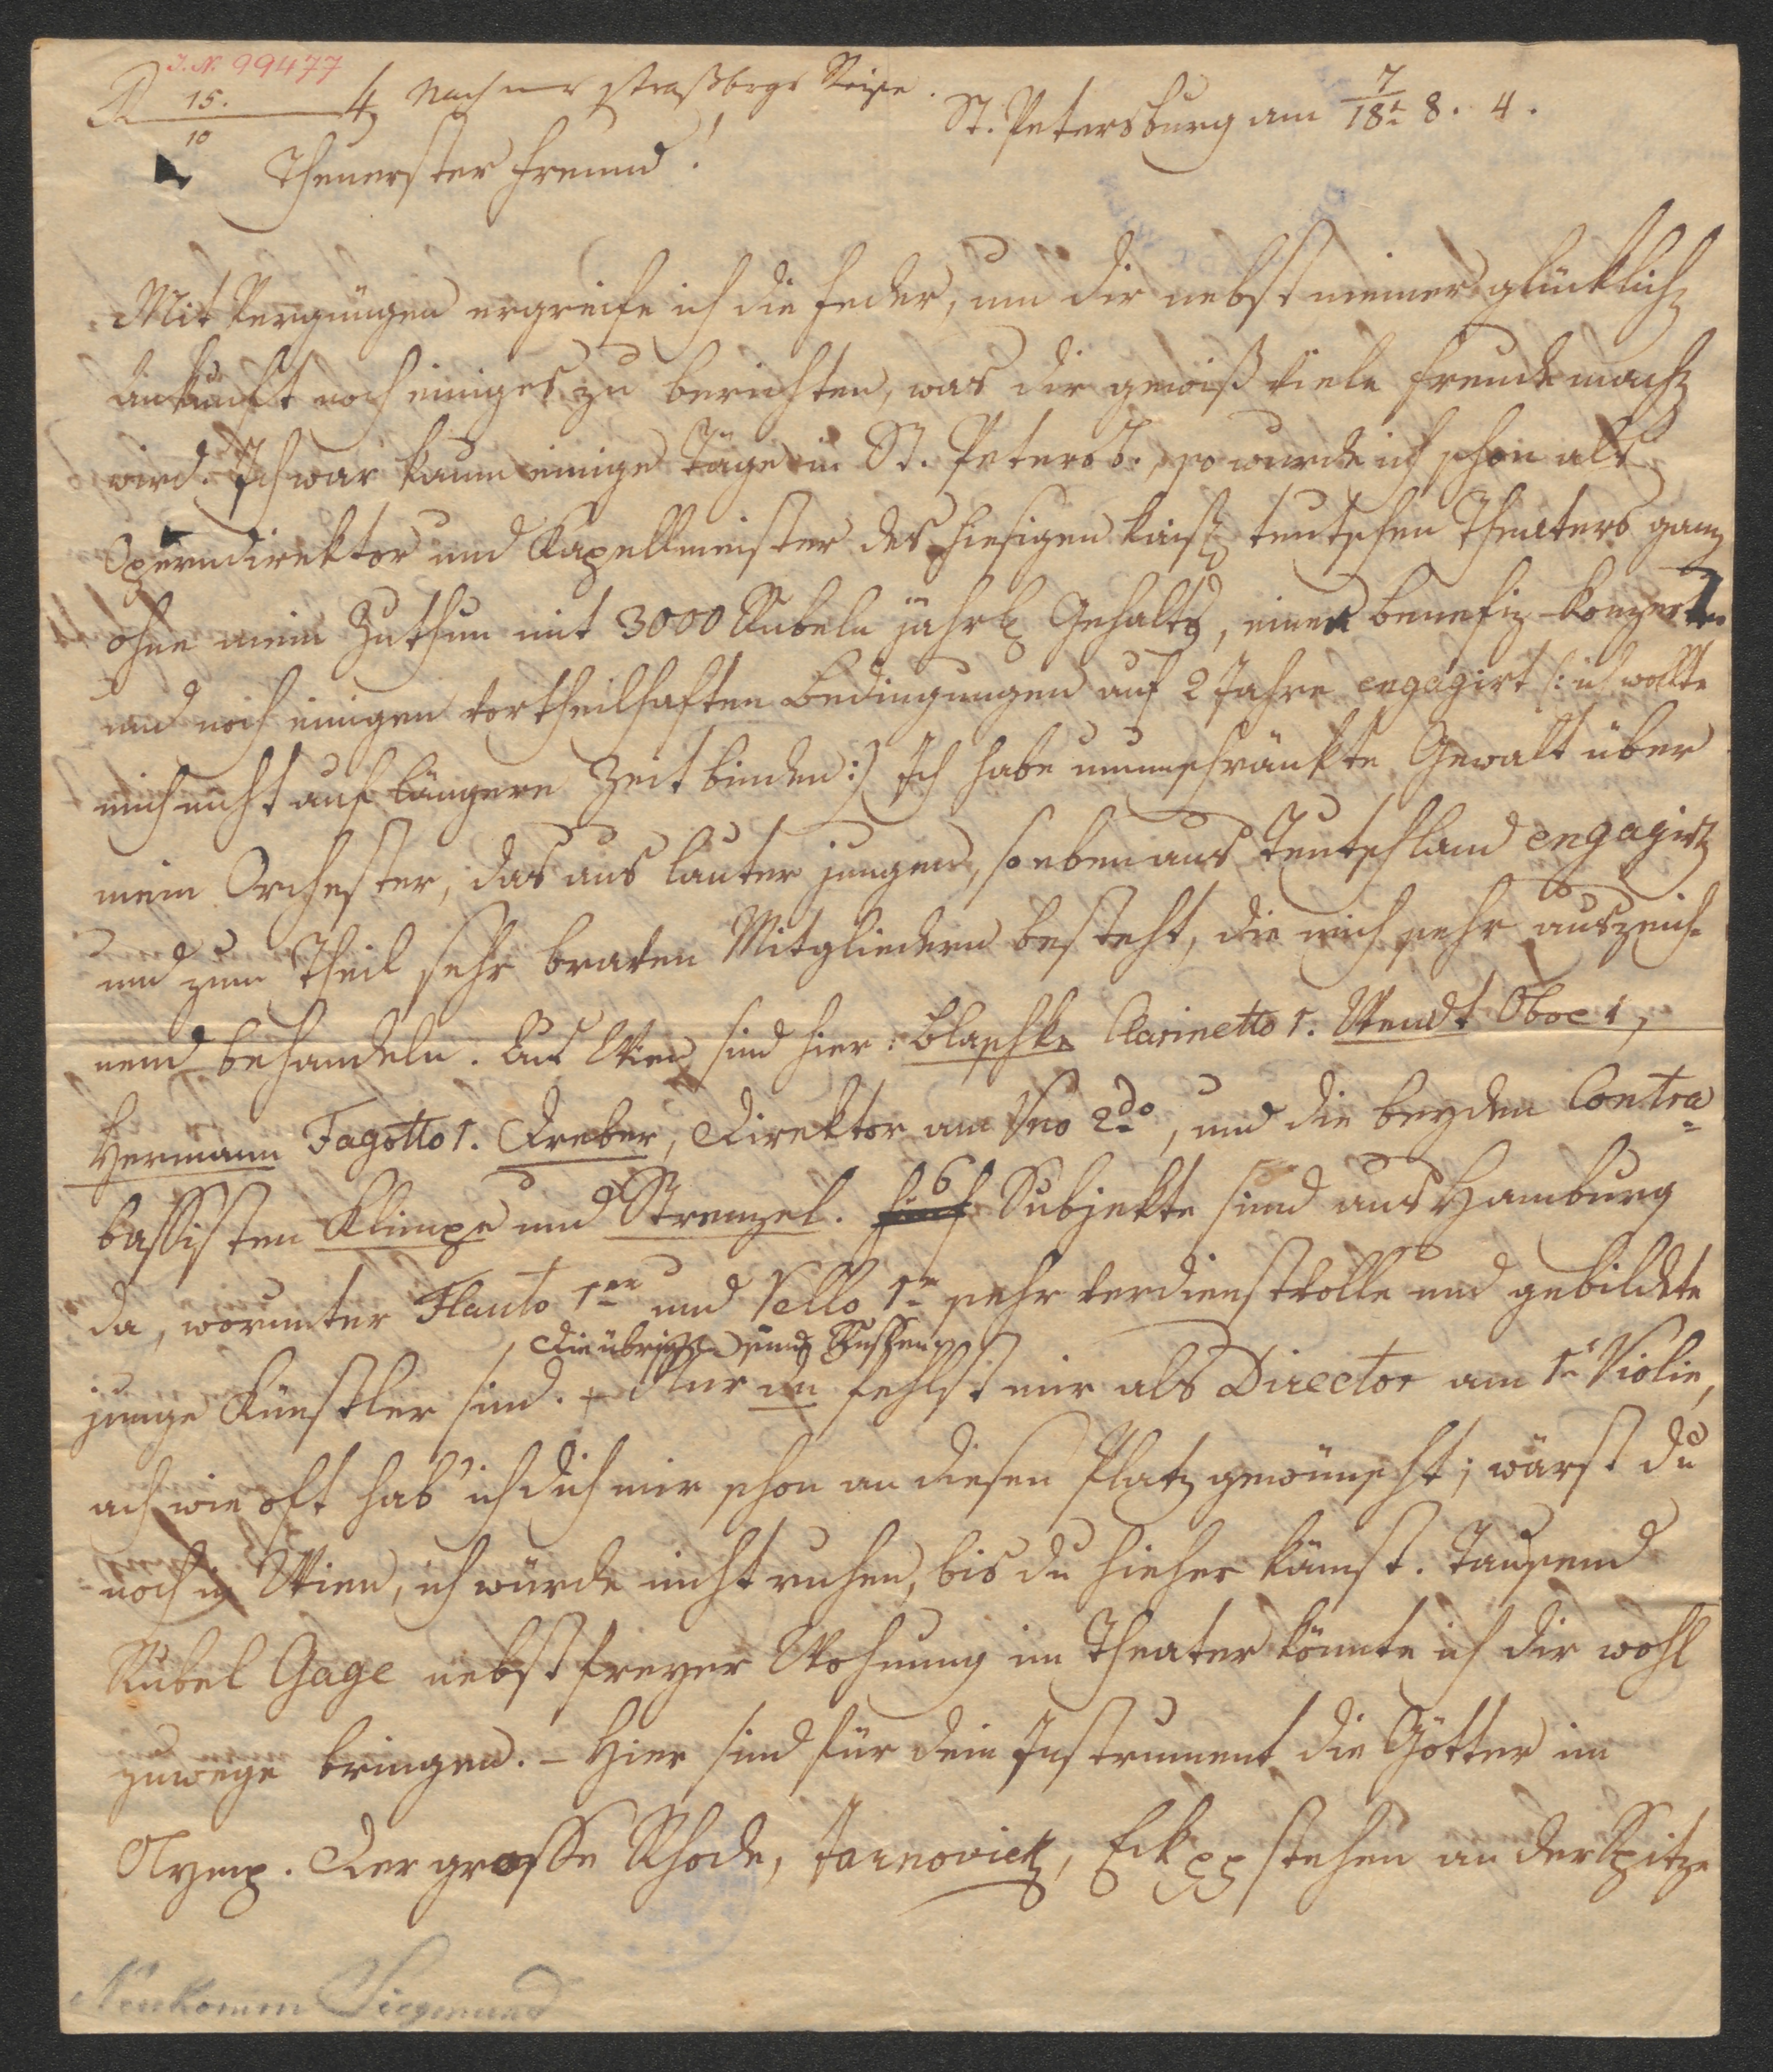 I. N. 99477
R 15. 4 Nach nur straßbrgr Reise.
10
St. Petersburg am 7/18t 8. 4.
Theuerster Freund!
Mit Vergnügen ergreife ich die Feder, um dir nebst meiner glücklich
Ankunft noch einiges zu berichten, was dir gewiß viele Freude mach
wird. Ich war kaum einige Täge in St. Petersb., so wurde ich schon als
Operndirektor und Kapellmeister des hiesigen kaisl teutschen Theaters ganz
ohne mein Zuthun mit 3000 Rubeln jährl Gehalts, einer benefiz-Konzert
und noch einigen vortheilhaften Bedingungen auf 2 Jahre engagirt (: ich wollte
mich nicht auf längere Zeit binden :) Ich habe unumschränkte Gewalt über
mein Orchester, das aus lauter jungen, so eben aus Teutschland engagirt
und zum Theil sehr braven Mitgliedern besteht, die mich sehr auszeich-
nend behandeln. Aus Wien sind hier: Blaschke Clarinetto 1. Wendt Oboe 1,
Hermann Fagotto 1. Dreber, Direktor am Vno 2do, und die beyden Contra-
bassisten Klimpe und Strenzel. fünf 6 Subjekte sind aus Hamburg
da, worunter Flauto 1mo und Vello 1o sehr verdienstvolle und gebildete
die übrigen sind Russen
junge Künstler sind. – Nur du fehlst mir als Director am 1n Violin,
ach wie oft hab' ich dich mir schon an diesen Platz gewünscht; wärst du
noch in Wien, ich würde nicht ruhen, bis du hieher kämst. Tausend
Rubel Gage nebst freyer Wohnung im Theater könnte ich dir wohl
zuwege bringen. – Hier sind für dein Instrument die Götter im
Olymp. Der grosse Rhode, Jarnovick, Eck pp stehen an der Spitze
Neukomm Siegmund